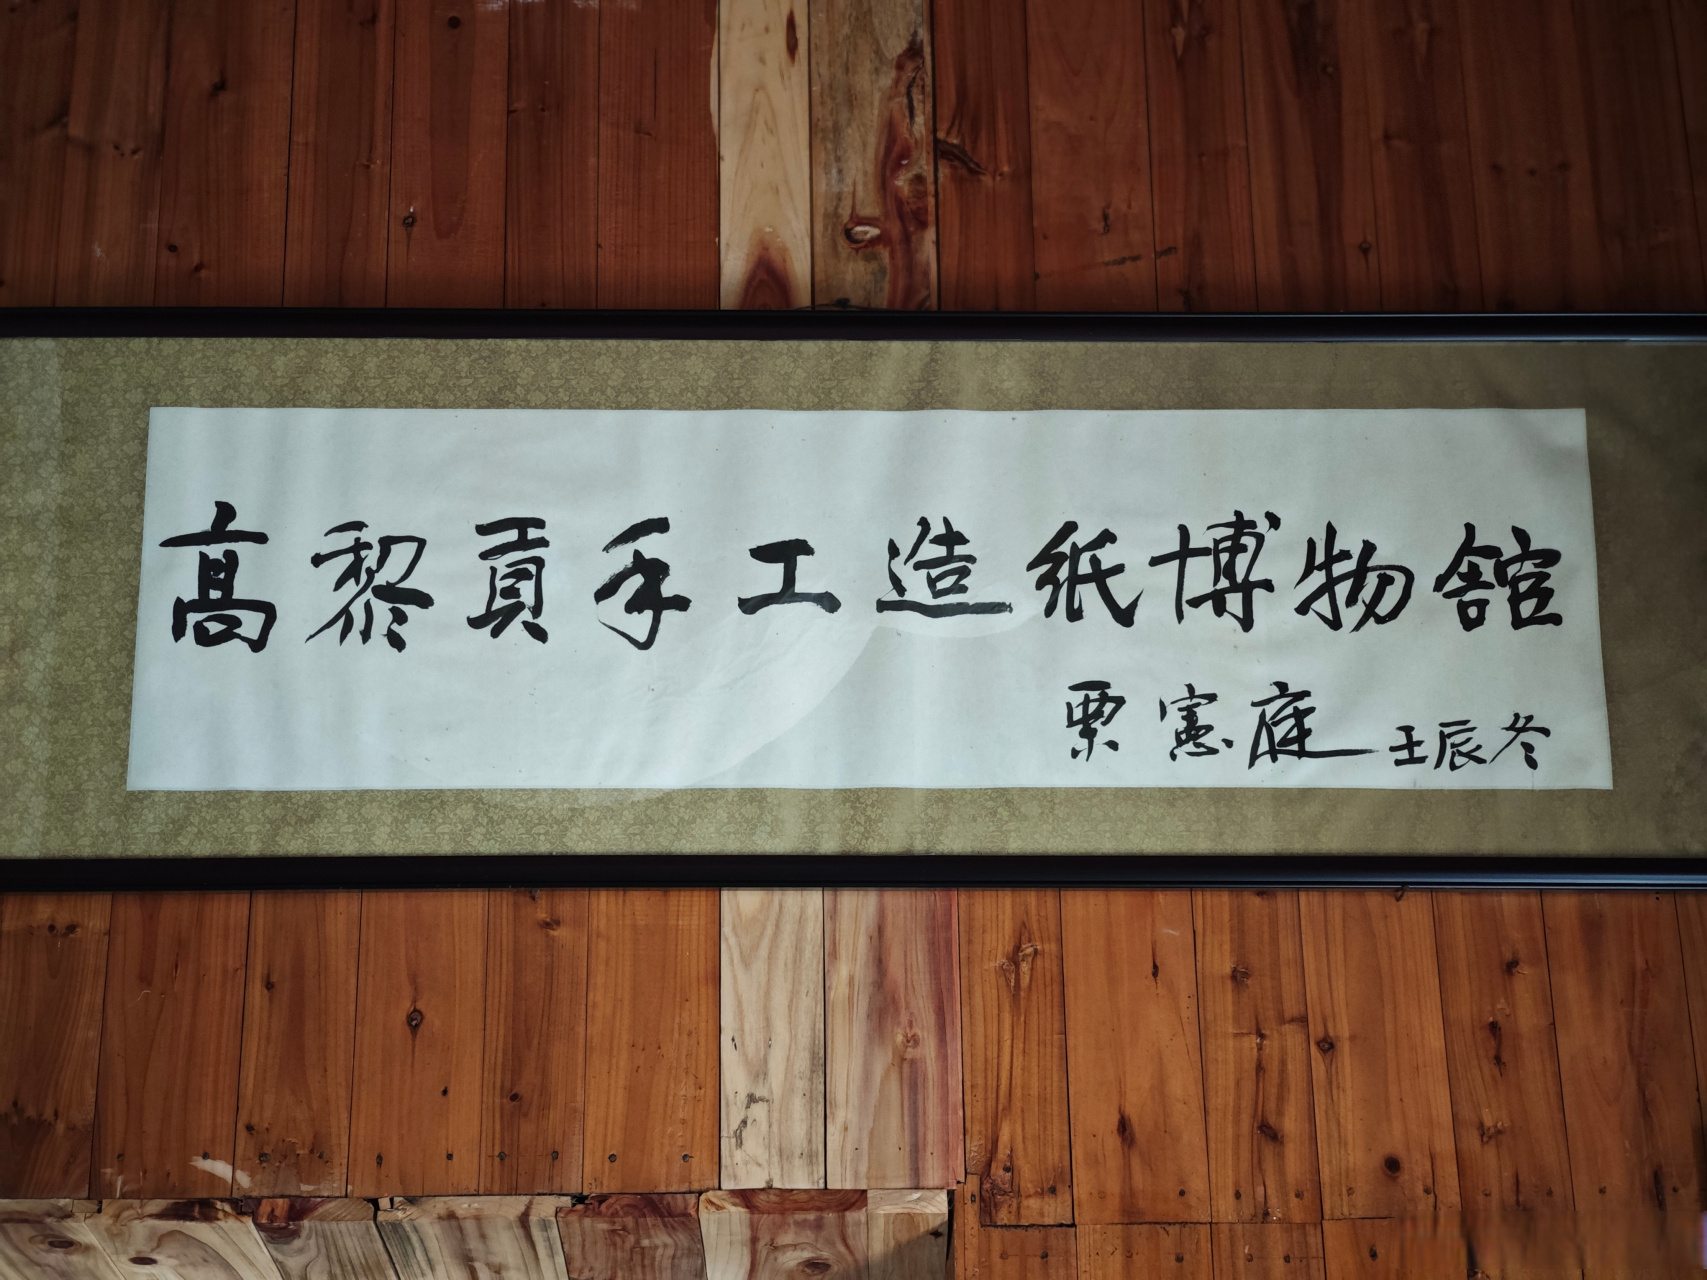 高黎貢手工造紙博物館
栗憲庭 壬辰冬